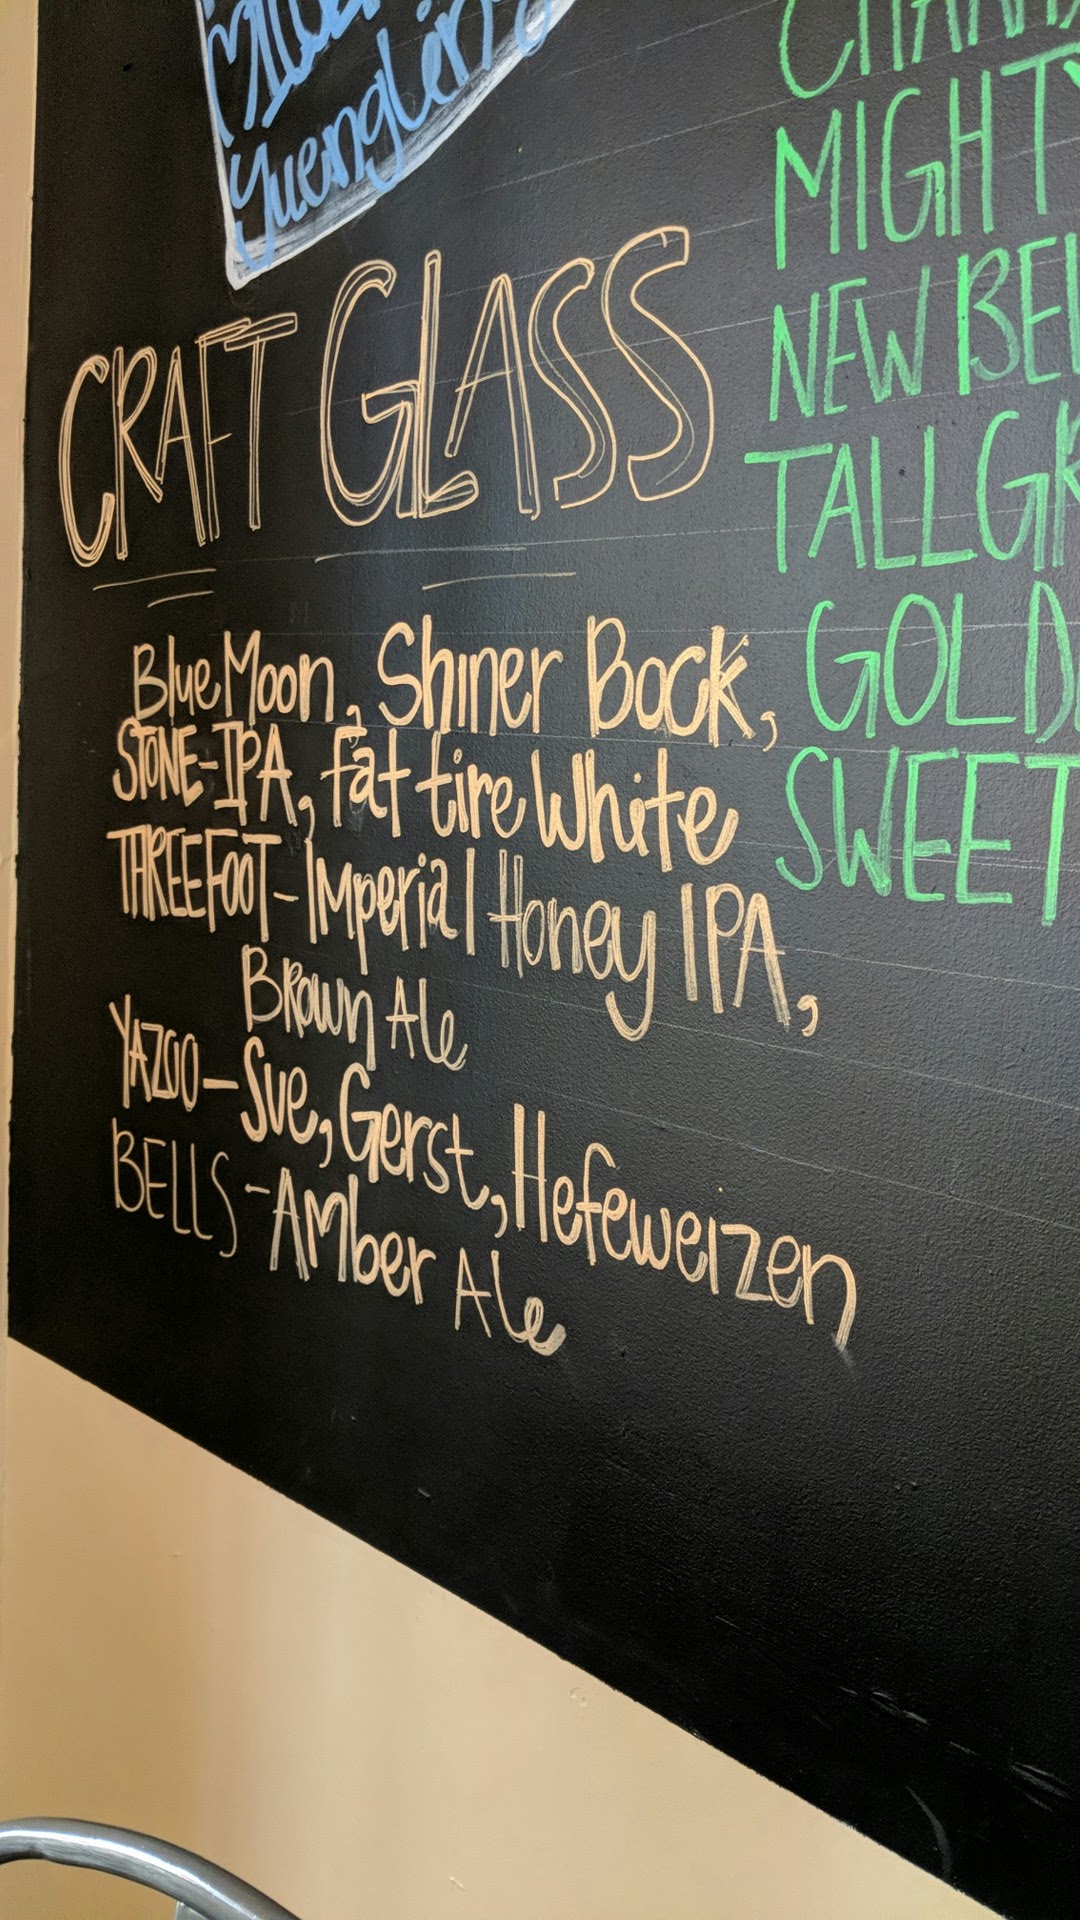 Yuengling
CRAFT GLASS
Blue Moon, Shiner Bock,
STONE-IPA, fat tire White
THREEFOOT-Imperial Honey IPA,
Brown Ale
YAZOO-Sue, Gerst, Hefeweizen
BELLS-Amber Ale
MIGHTY
NEW BEL
TALLGR
GOLD
SWEET